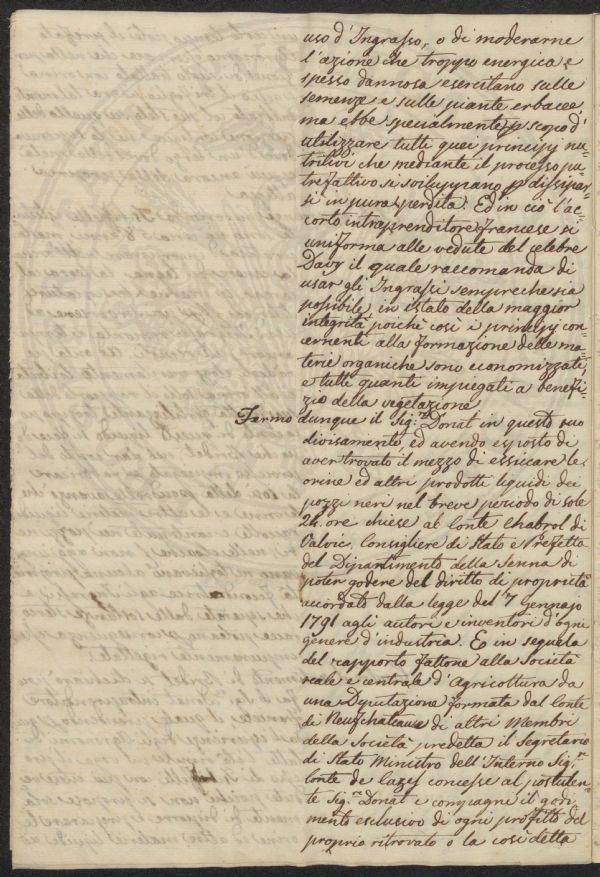 uso d'Ingrasso, o di moderarne
l'azione che troppo energica e
spesso dannosa esercitano sulle
semenze e sulle piante erbacee,
ma ebbe specialmente p scopo d'
utilizzare tutti quei principj nu-
tritivi che mediante il processo pu-
trefattivo si sviluppano p dissipar-
si in pura perdita. Ed in ciò l'ac-
corto intraprenditore Francese si
uniforma alle vedute del celebre
Davy il quale raccomanda di
usar gli Ingrassi sempreche sia
possibile in istato della maggior
integrità poichè così i principj con-
cernenti alla formazione delle ma-
terie organiche sono economizzati,
e tutti quanti impiegati a benefi-
zio della vegetazione
Fermo dunque il Sig.r Donat in questo suo
divisamento, ed avendo esposto di
aver trovato il mezzo di essiccare le
orine ed altri prodotti liquidi dei
pozzi neri nel breve periodo di sole
24. ore chiese al Conte Chabrol di
Valvic, Consigliere di Stato e Prefetto
del Dipartimento della Senna di
poter godere del diritto di proprietà
accordato dalla legge del 7 Gennajo
1791 agli autori e inventori d'ogni
genere d'industria. E in seguela
del rapporto fattone alla Società
reale e centrale d'Agricoltura da
una Deputazione formata dal Conte
di Neufchateau e di altri Membri
della Società predetta il Segretario
di Stato Ministro dell'Interno Sig.r
Conte de Cazes concesse al postulen-
te Sig.r Donat e compagni il godi-
mento esclusivo di ogni profitto del
proprio ritrovato o la così detta